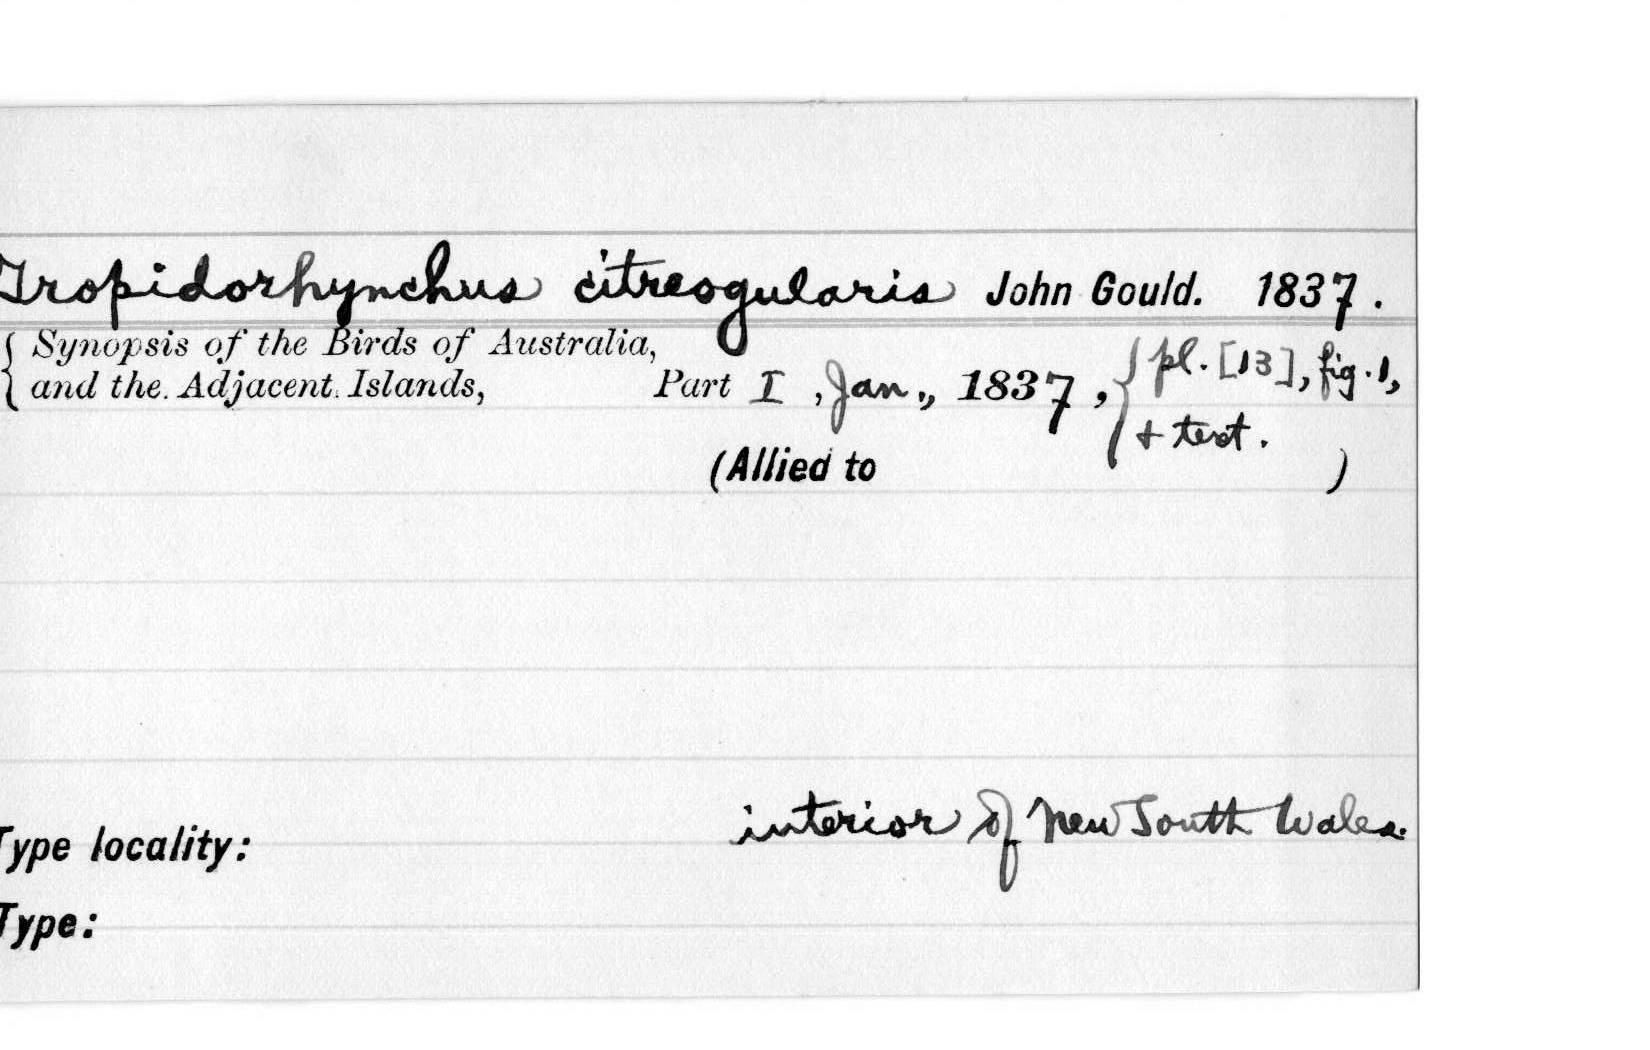 Tropidorhynchus citreogularis John Gould. 1837.
Synopsis of the Birds of Australia,
and the Adjacent Islands, Part I, Jan., 1837, pl. [13], fig. 1,
+ text.
(Allied to )
interior of New South Wales.
Type locality:
Type: